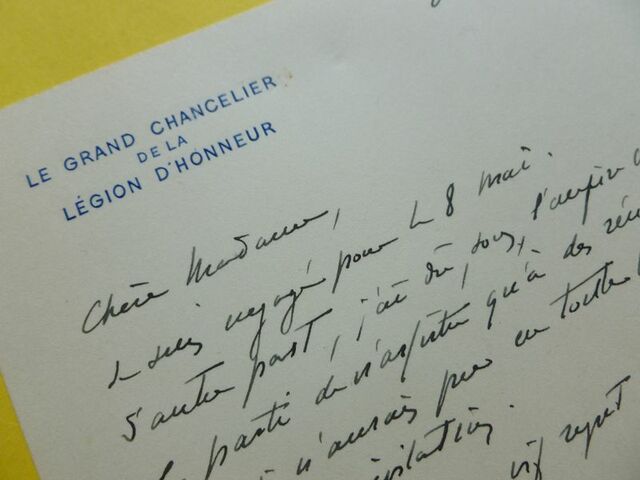 LE GRAND CHANCELIER
DE LA
LÉGION D'HONNEUR
Chère Madame,
Je suis engagé pour le 8 mai.
D'autre part, j'ai dû, sous l'
parti de n'assister qu'à des
n'aurais pu en toute
vif regret